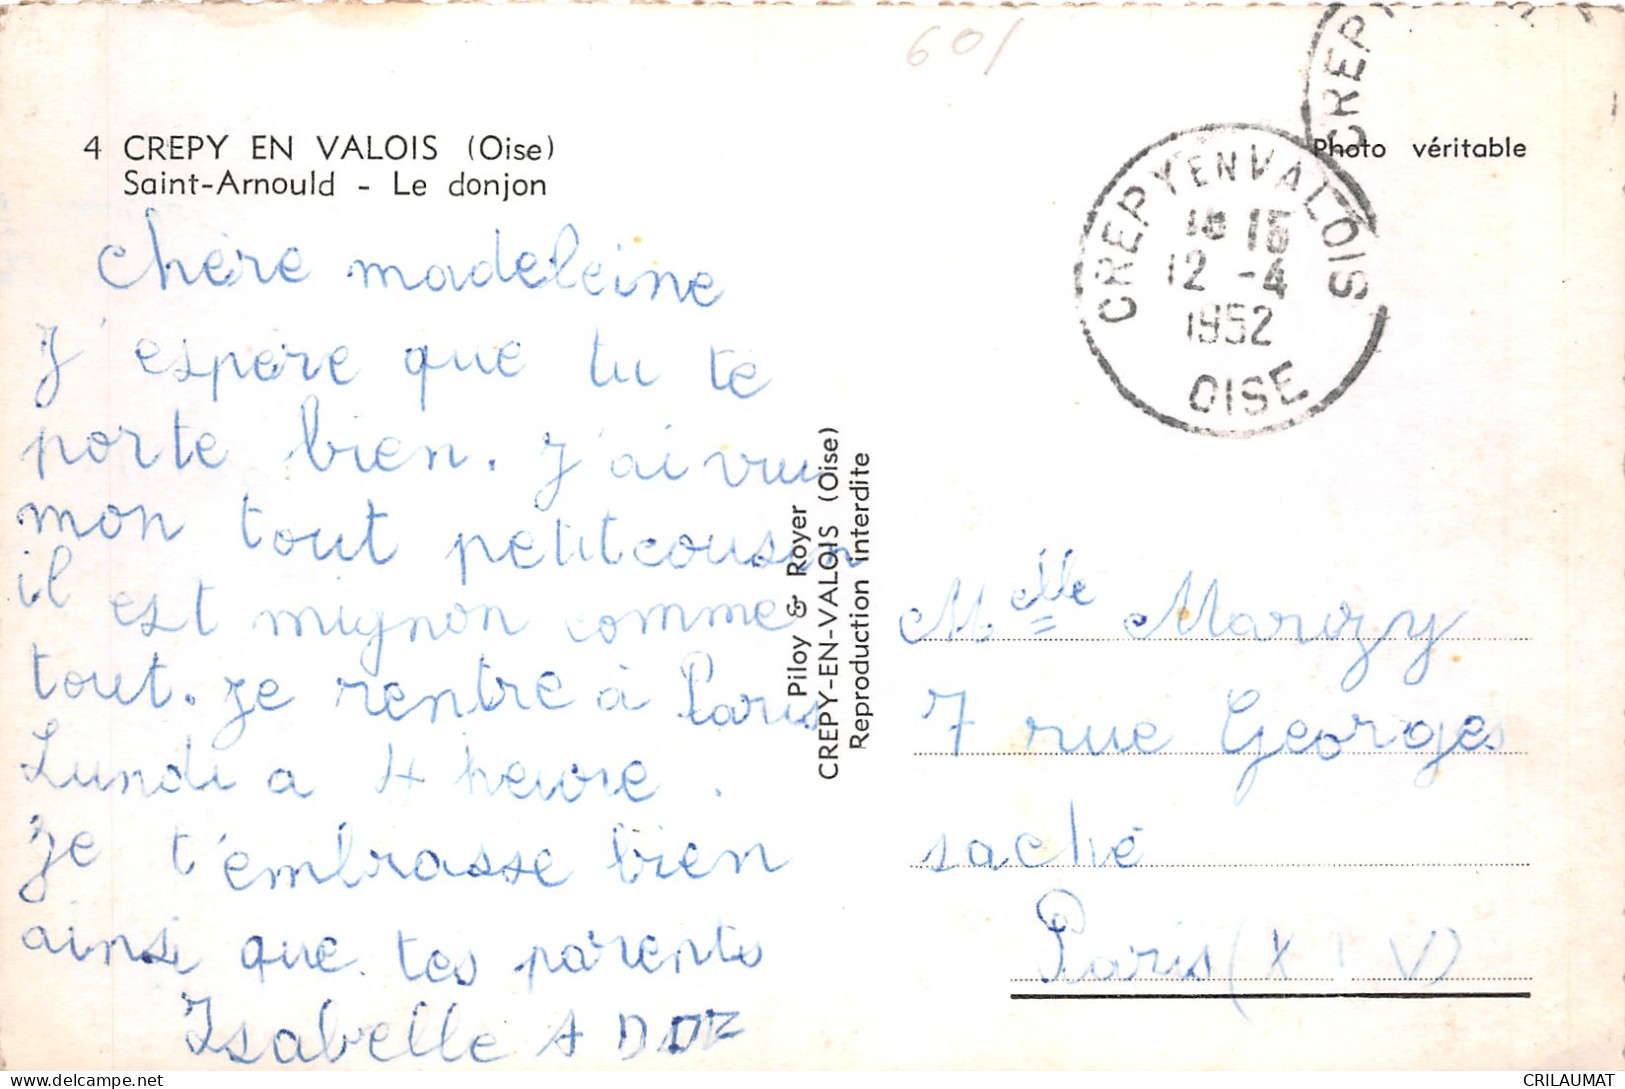 601
4 CREPY EN VALOIS (Oise)
Saint-Arnould - Le donjon
Photo véritable
CREPY
CREPY EN VALOIS
18 15
12 -4
1952
OISE
Chère madeleine
J'espère que tu te
porte bien. J'ai vu
mon tout petit cousin
il est mignon comme
tout. Je rentre à Paris
Lundi a 4 heure.
Je t'embrasse bien
ainsi que tes parents
Isabelle
Piloy & Royer
CREPY-EN-VALOIS (Oise)
Reproduction interdite
Melle Marizy
7 rue Georges
saché
Paris (XIV)
CRILAUMAT